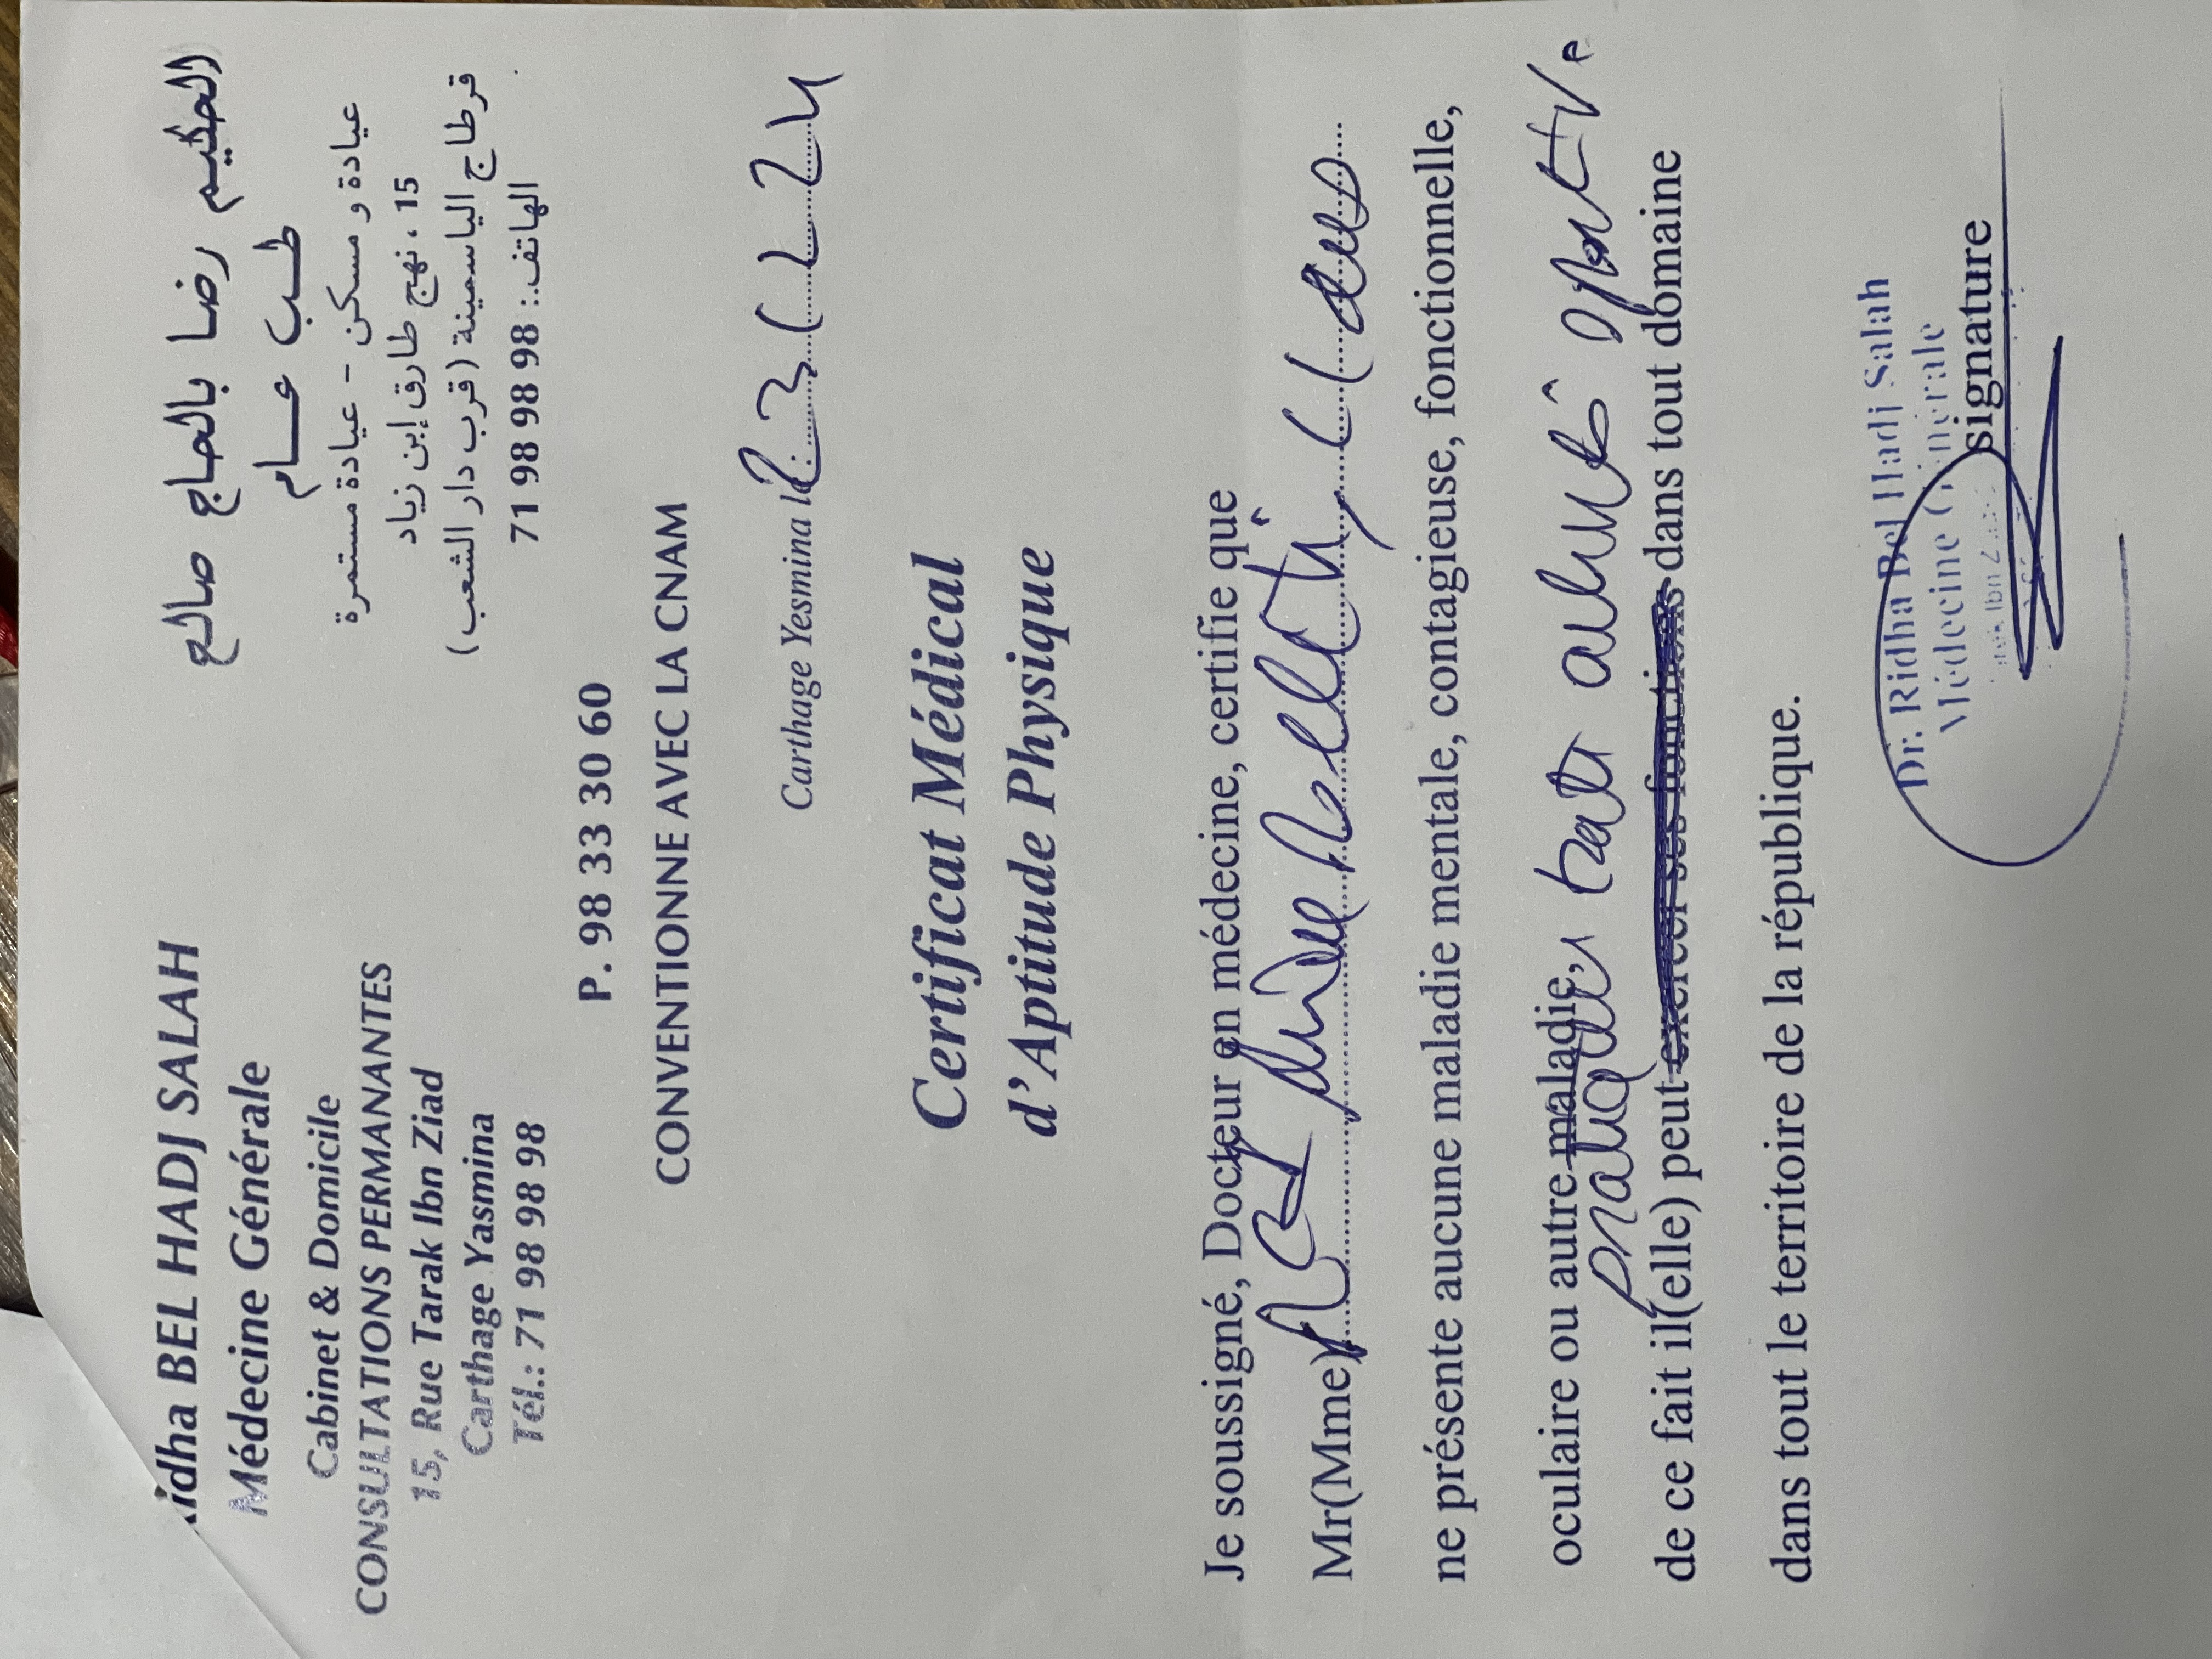 Ridha BEL HADJ SALAH
Médecine Générale
Cabinet & Domicile
CONSULTATIONS PERMANANTES
15, Rue Tarak Ibn Ziad
Carthage Yasmina
Tél.: 71 98 98 98
الحكيم رضا بالحاج صالح
طب عام
عيادة و مسكن - عيادة مستمرة
15، نهج طارق إبن زياد
قرطاج الياسمينة (قرب دار الشعب)
الهاتف: 71 98 98 98
P. 98 33 30 60
CONVENTIONNE AVEC LA CNAM
Carthage Yesmina le
Certificat Médical
d'Aptitude Physique
Je soussigné, Docteur en médecine, certifie que
Mr(Mme)
ne présente aucune maladie mentale, contagieuse, fonctionnelle,
oculaire ou autre maladie,
pratiquer toute activité sportive
de ce fait il(elle) peut exercer ses fonctions dans tout domaine
dans tout le territoire de la république.
Dr. Ridha Bel Hadj Salah
Médecine Générale
signature